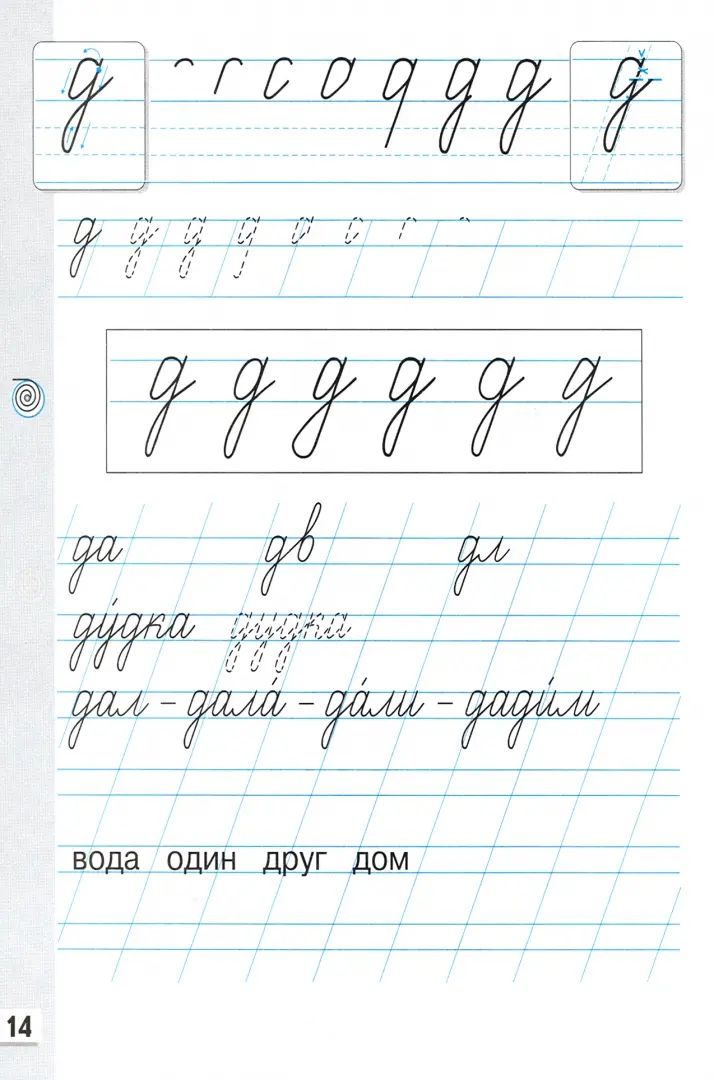 д д д д
д д д д
д д д д д д
да дв дл
ду́дка дудка
дал – дала́ – да́ли – дади́м
вода один друг дом
14